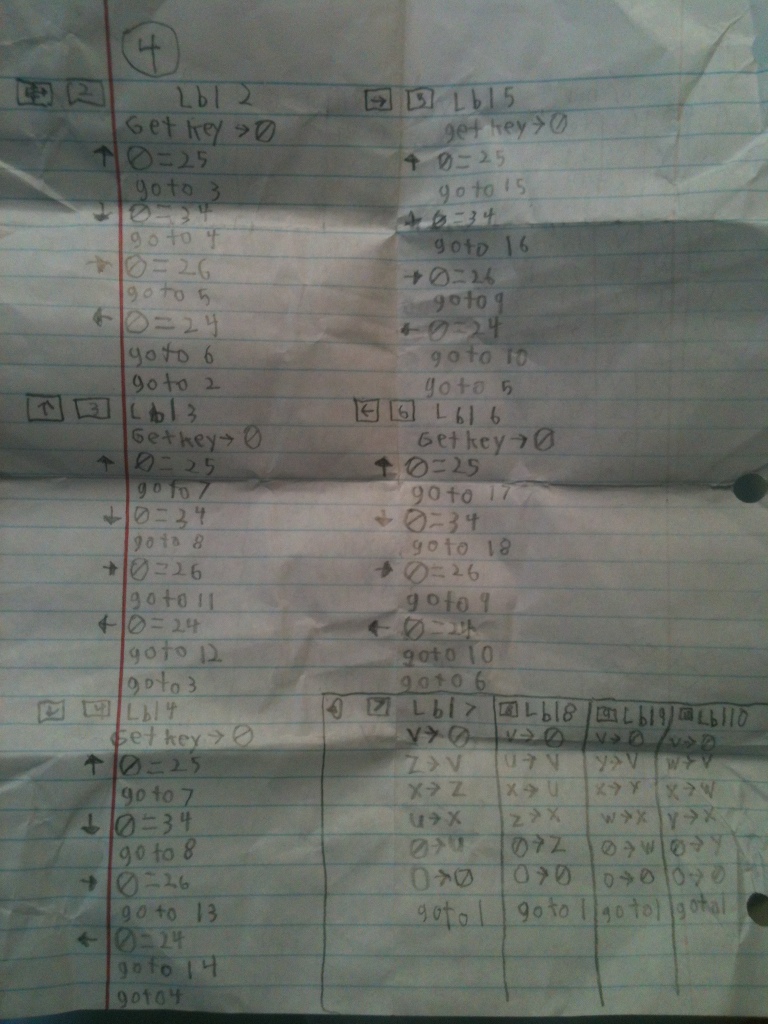 4
2 Lbl 2
Get key → Ø
↑ Ø = 25
goto 3
↓ Ø = 34
goto 4
→ Ø = 26
goto 5
← Ø = 24
goto 6
goto 2
↑ 3 Lbl 3
Get key → Ø
↑ Ø = 25
goto 7
↓ Ø = 34
goto 8
→ Ø = 26
goto 11
← Ø = 24
goto 12
goto 3
↓ 4 Lbl 4
Get key → Ø
↑ Ø = 25
goto 7
↓ Ø = 34
goto 8
→ Ø = 26
goto 13
← Ø = 24
goto 14
goto 4
→ 5 Lbl 5
get key → Ø
↑ Ø = 25
goto 15
↓ Ø = 34
goto 16
→ Ø = 26
goto 9
← Ø = 24
goto 10
goto 5
← 6 Lbl 6
Get key → Ø
↑ Ø = 25
goto 17
↓ Ø = 34
goto 18
→ Ø = 26
goto 9
← Ø = 24
goto 10
goto 6
7 Lbl 7
V → Ø
Z → V
X → Z
U → X
Ø → U
O → Ø
goto 1
8 Lbl 8
V → Ø
U → V
X → U
Z → X
Ø → Z
O → Ø
goto 1
9 Lbl 9
V → Ø
Y → V
X → Y
W → X
Ø → W
O → Ø
goto 1
Lbl 10
V → Ø
W → V
X → W
Y → X
Ø → Y
O → Ø
goto 1